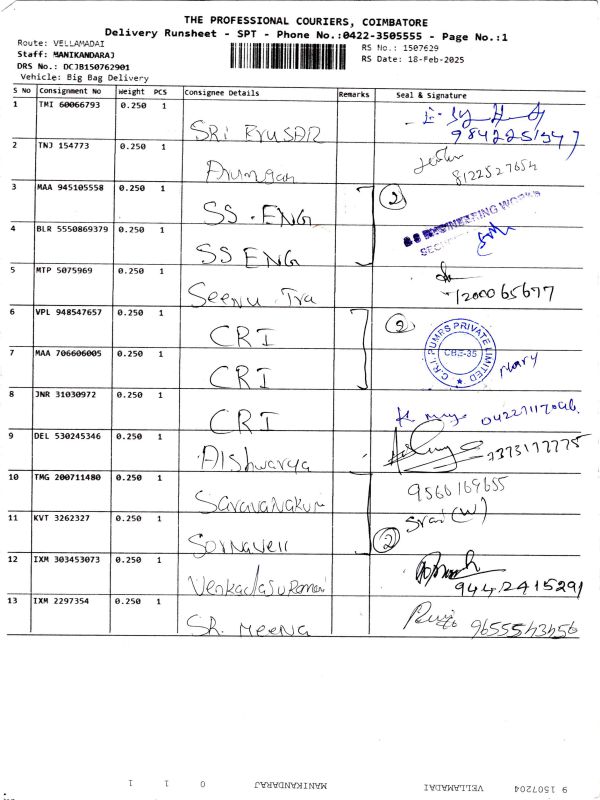 THE PROFESSIONAL COURIERS, COIMBATORE
Delivery Runsheet - SPT - Phone No.:0422-3505555 - Page No.:1
Route: VELLAMADAI
Staff: MANIKANDARAJ
DRS No.: DCJB150762901
Vehicle: Big Bag Delivery
RS No.: 1507629
RS Date: 18-Feb-2025
S No Consignment No Weight PCS Consignee Details Remarks Seal & Signature
1 TMI 60066793 0.250 1 SRI
9842251547
2 TNJ 154773 0.250 1 Arumugam
8122527654
3 MAA 945105558 0.250 1 SS. ENG 2
ENGINEERING WORKS
4 BLR 5550869379 0.250 1 SS ENG
5 MTP 5075969 0.250 1 Seenu Tra
7200065677
6 VPL 948547657 0.250 1 CRI 2
C.R.I. PUMPS PRIVATE LIMITED
CBE-35
7 MAA 706606005 0.250 1 CRI
8 JNR 31030972 0.250 1 CRI
9 DEL 530245346 0.250 1 Aishwarya
7373177775
10 TMG 200711480 0.250 1 Saravanakum
9566169655
11 KVT 3262327 0.250 1 Sornavell
2
12 IXM 303453073 0.250 1
9442415291
13 IXM 2297354 0.250 1 SR. Meena
9655543456
9 1507204 VELLAMADAI MANIKANDARAJ 0 1 1